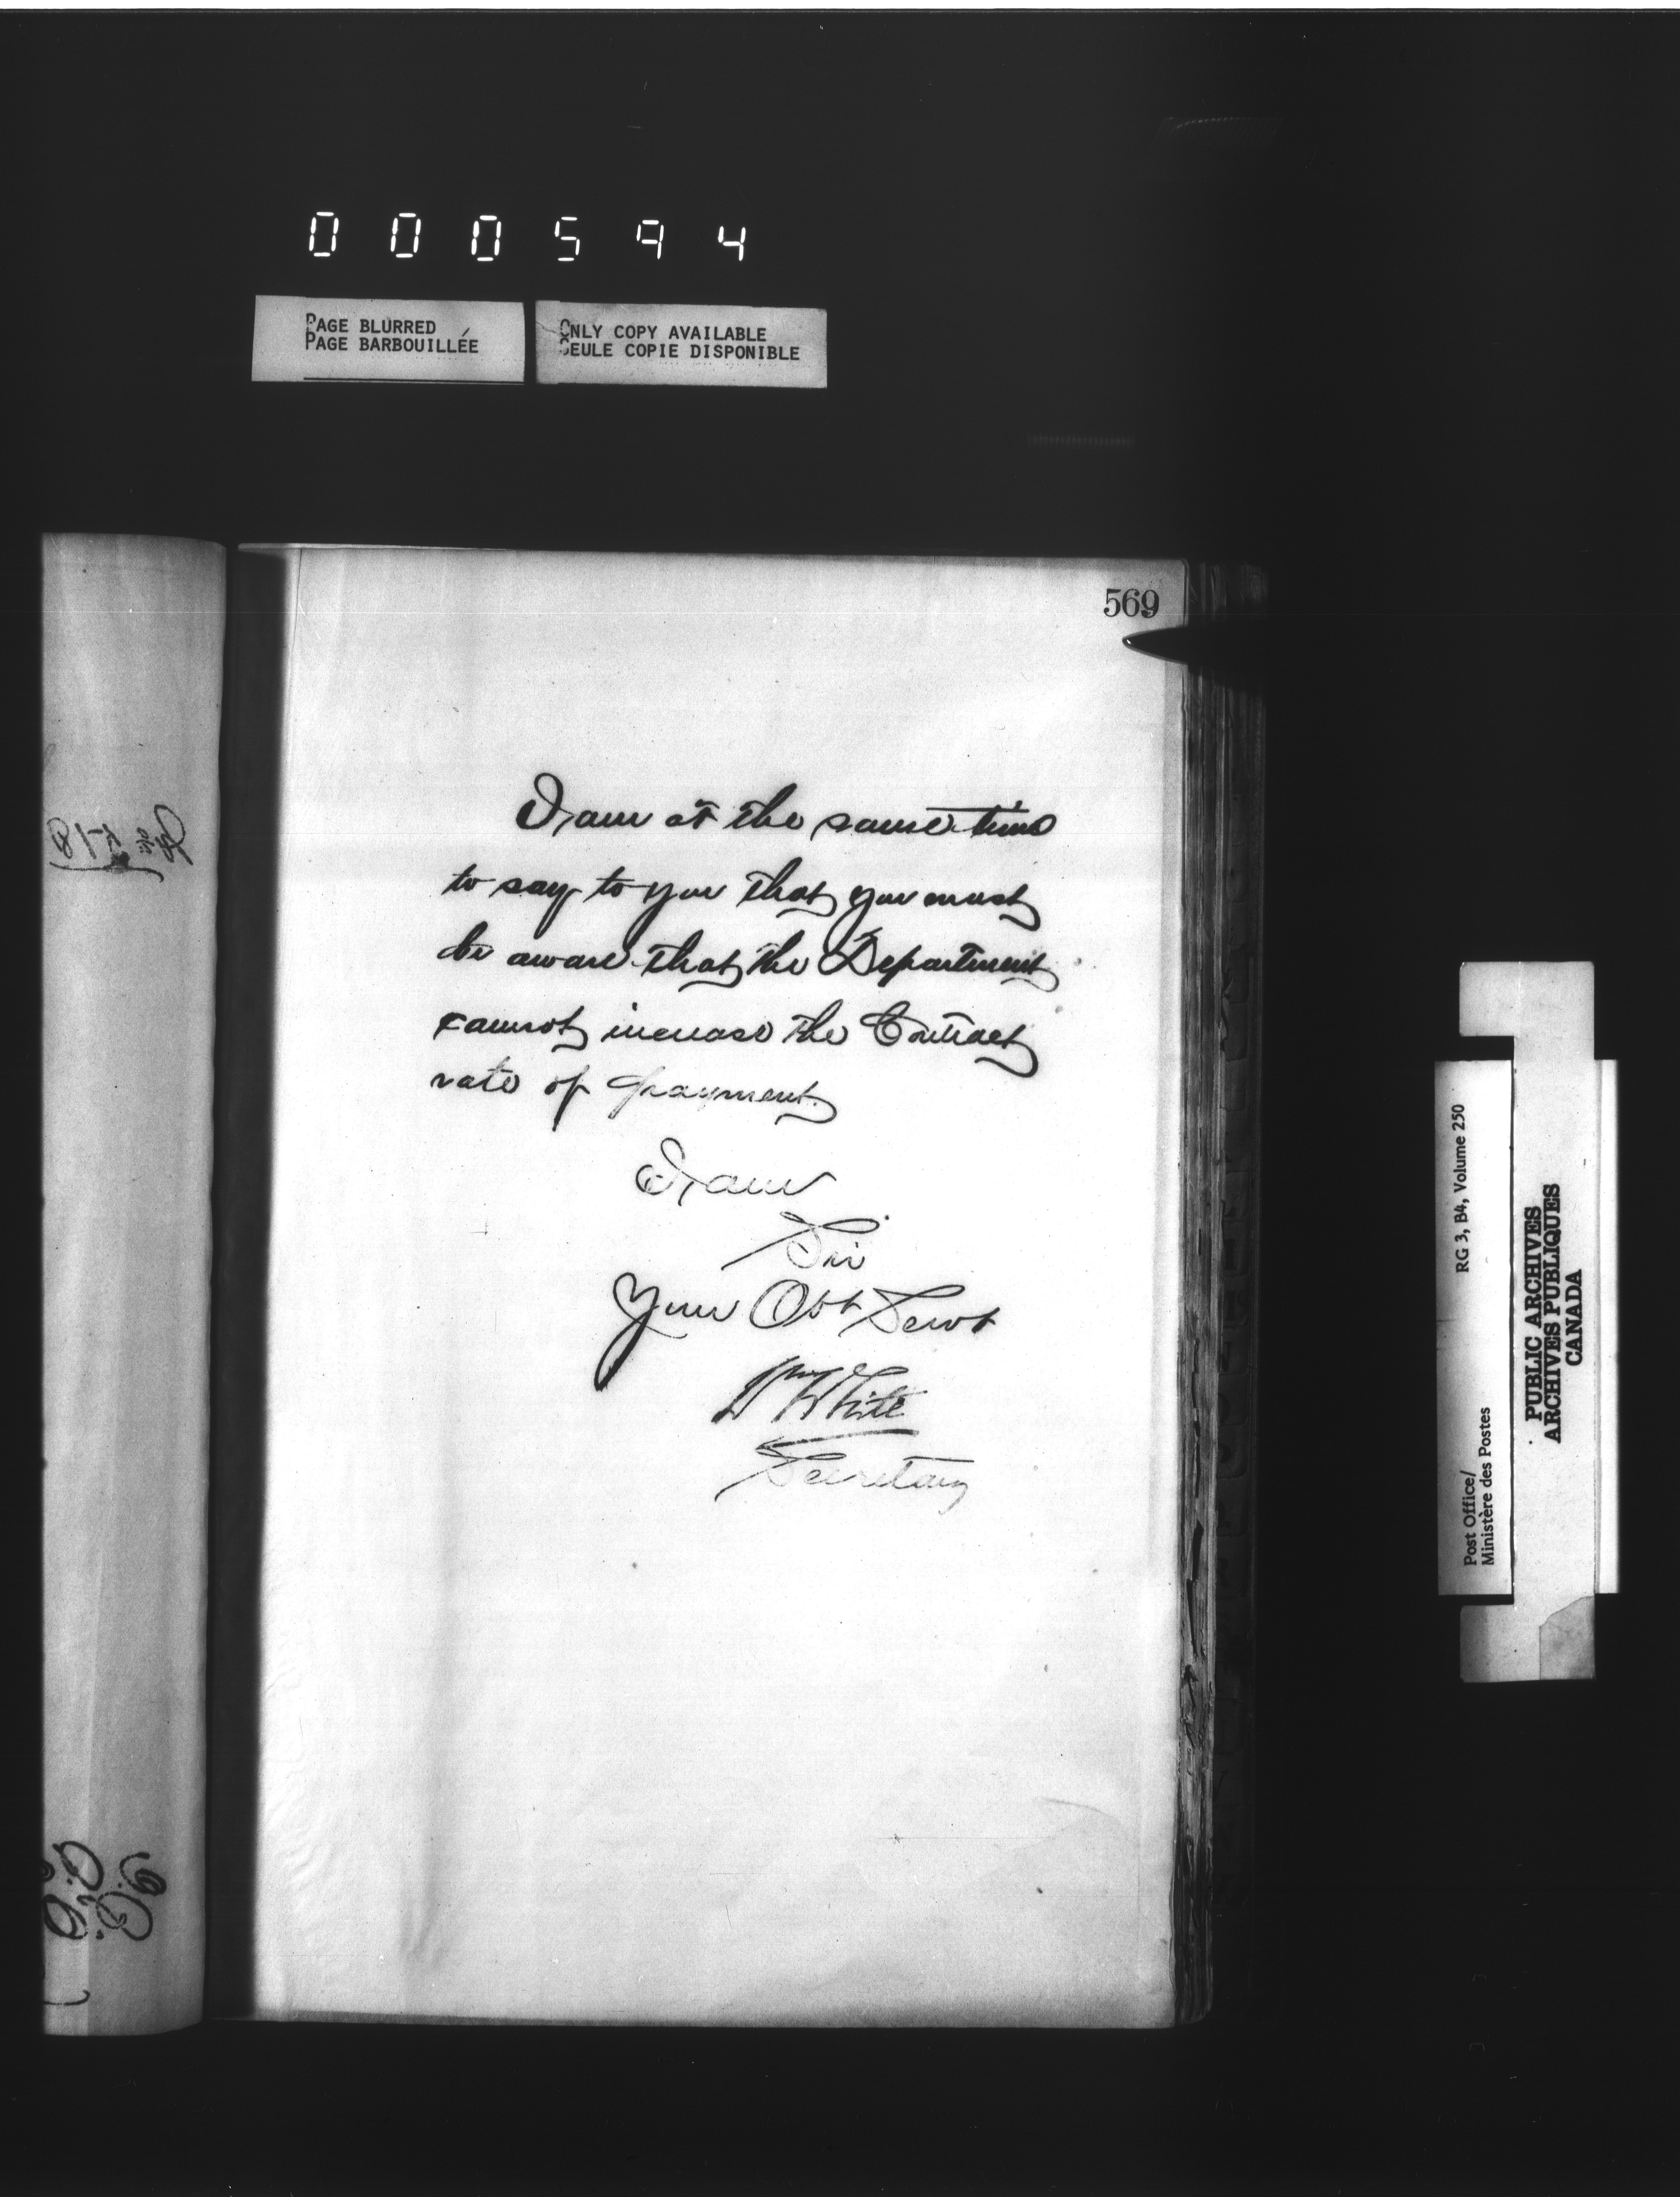 000594
PAGE BLURRED
PAGE BARBOUILLÉE
ONLY COPY AVAILABLE
SEULE COPIE DISPONIBLE
569
I am at the same time
to say to you that you must
be aware that the Department
cannot increase the Contract
rate of payment.
I am
Sir
Your Obt Servt
Wm White
Secretary
RG 3, B4, Volume 250
Post Office/
Ministère des Postes
PUBLIC ARCHIVES
ARCHIVES PUBLIQUES
CANADA